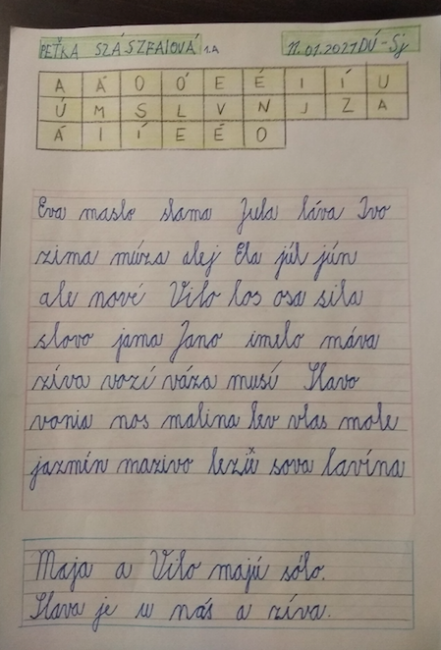 PEŤKA SZÁSZFAIOVÁ 1.A 11.01.2021 DÚ-Sj
A Á O Ó E É I Í U
Ú M S L V N J Z A
Á I Í E É O
Eva maslo slama Jula láva Ivo
zima múza alej Ela júl jún
ale nové Vilo los osa sila
slovo jama Jano imelo máva
zíva vozí váza musí Slavo
vonia nos malina lev vlas mole
jazmín mazivo sova lavína
Maja a Vilo majú sólo.
Slava je u nás a zíva.